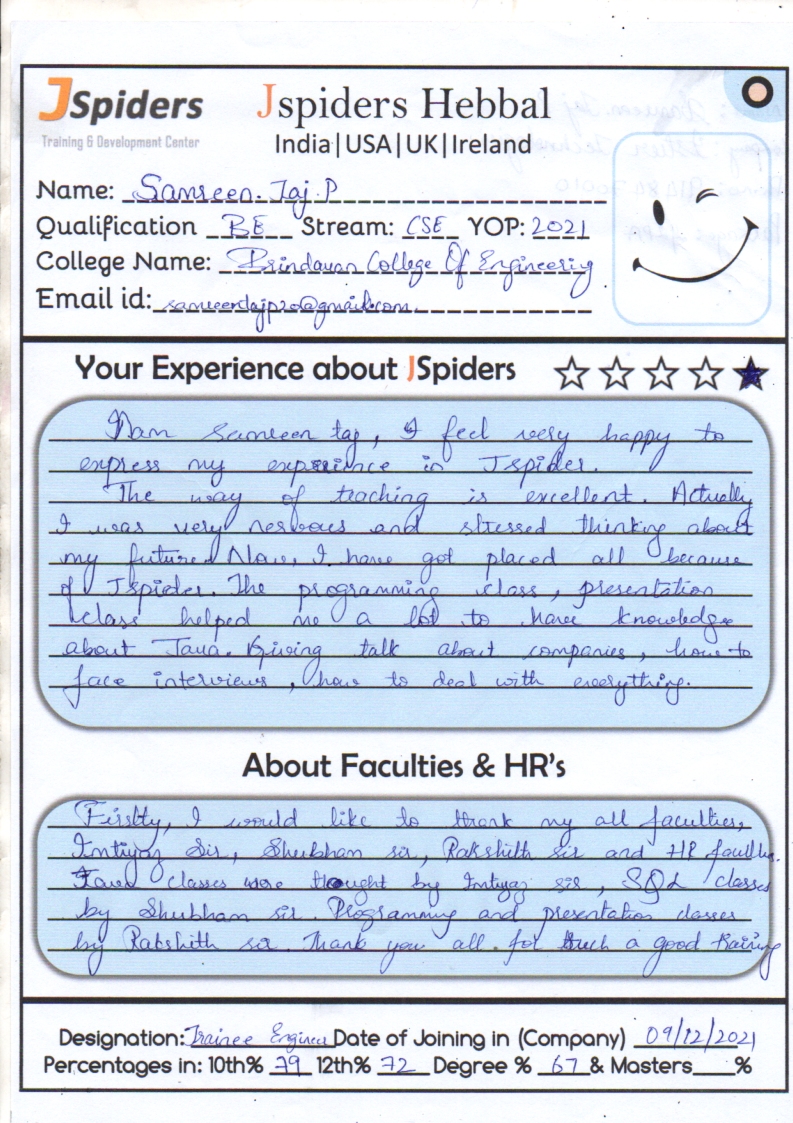 JSpiders
Training & Development Center
Jspiders Hebbal
India|USA|UK|Ireland
Name: Samreen. Taj. P
Qualification BE Stream: CSE YOP: 2021
College Name: Brindavan College Of Engineering
Email id: samreentajp20@gmail.com
Your Experience about JSpiders
I am Samreen taj, I feel very happy to
express my experience in Jspider.
The way of teaching is excellent. Actually
I was very nervous and stressed thinking about
my future. Now, I have got placed all because
of Jspider. The programming class, presentation
class helped me a lot to have knowledge
about Java. Giving talk about companies, how to
face interviews, how to deal with everything.
About Faculties & HR's
Firstly, I would like to thank my all faculties,
Imtiyaz Sir, Shubham sir, Rakshith sir and HR faculties.
Java classes were thought by Imtiyaz sir, SQL classes
by Shubham sir. Programming and presentation classes
by Rakshith sir. Thank you all. for such a good training
Designation: Trainee Engineer Date of Joining in (Company) 09/12/2021
Percentages in: 10th% 79 12th% 72 Degree % 67 & Masters %